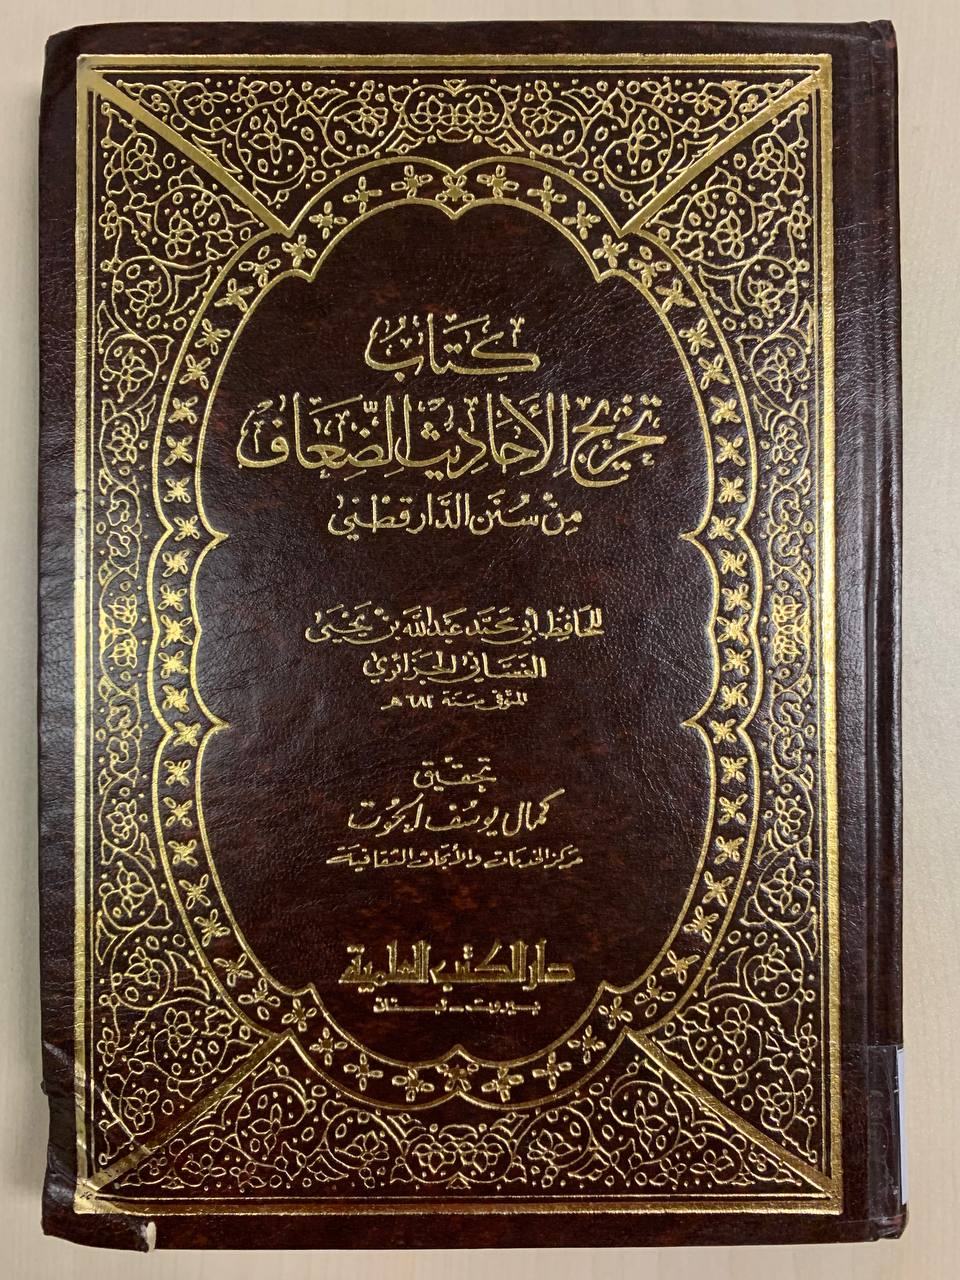 كتاب
تخريج الأحاديث الضعاف
من سنن الدارقطني
للحافظ أبي محمد عبد الله بن يحيى
الغساني الجزائري
المتوفى سنة ٦٨٢ هـ
تحقيق
كمال يوسف الحوت
مركز الخدمات والأبحاث الثقافية
دار الكتب العلمية
بيروت - لبنان